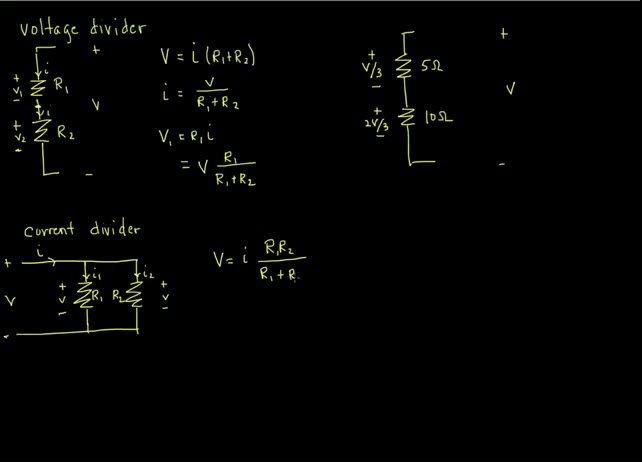 voltage divider
+
i
+
V₁
-
R₁
i
V
+
V₂
-
R₂
-
V = i (R₁+R₂)
i = V / R₁+R₂
V₁ = R₁ i
= V R₁ / R₁+R₂
+
V/3
-
5Ω
+
V
+
2V/3
-
10Ω
-
current divider
i
+
i₁
i₂
V
+
V
-
R₁
R₂
+
V
-
-
V = i R₁R₂ / R₁+R